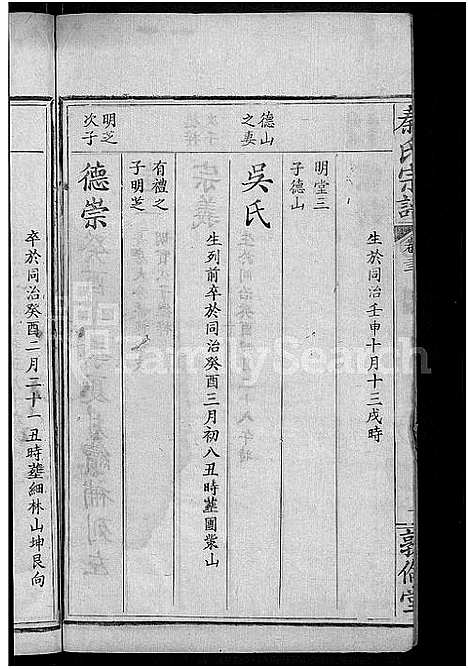 秦氏宗譜
卷三
敦倫堂
生於同治壬申十月十三戌時
明堂三
子德山
德山
之妻
吳氏
生列前卒於同治癸酉三月初八丑時塟團業山
有禮之
子明芝
明芝
次子
德崇
卒於同治癸酉二月二十一丑時塟細林山坤艮向
FamilySearch